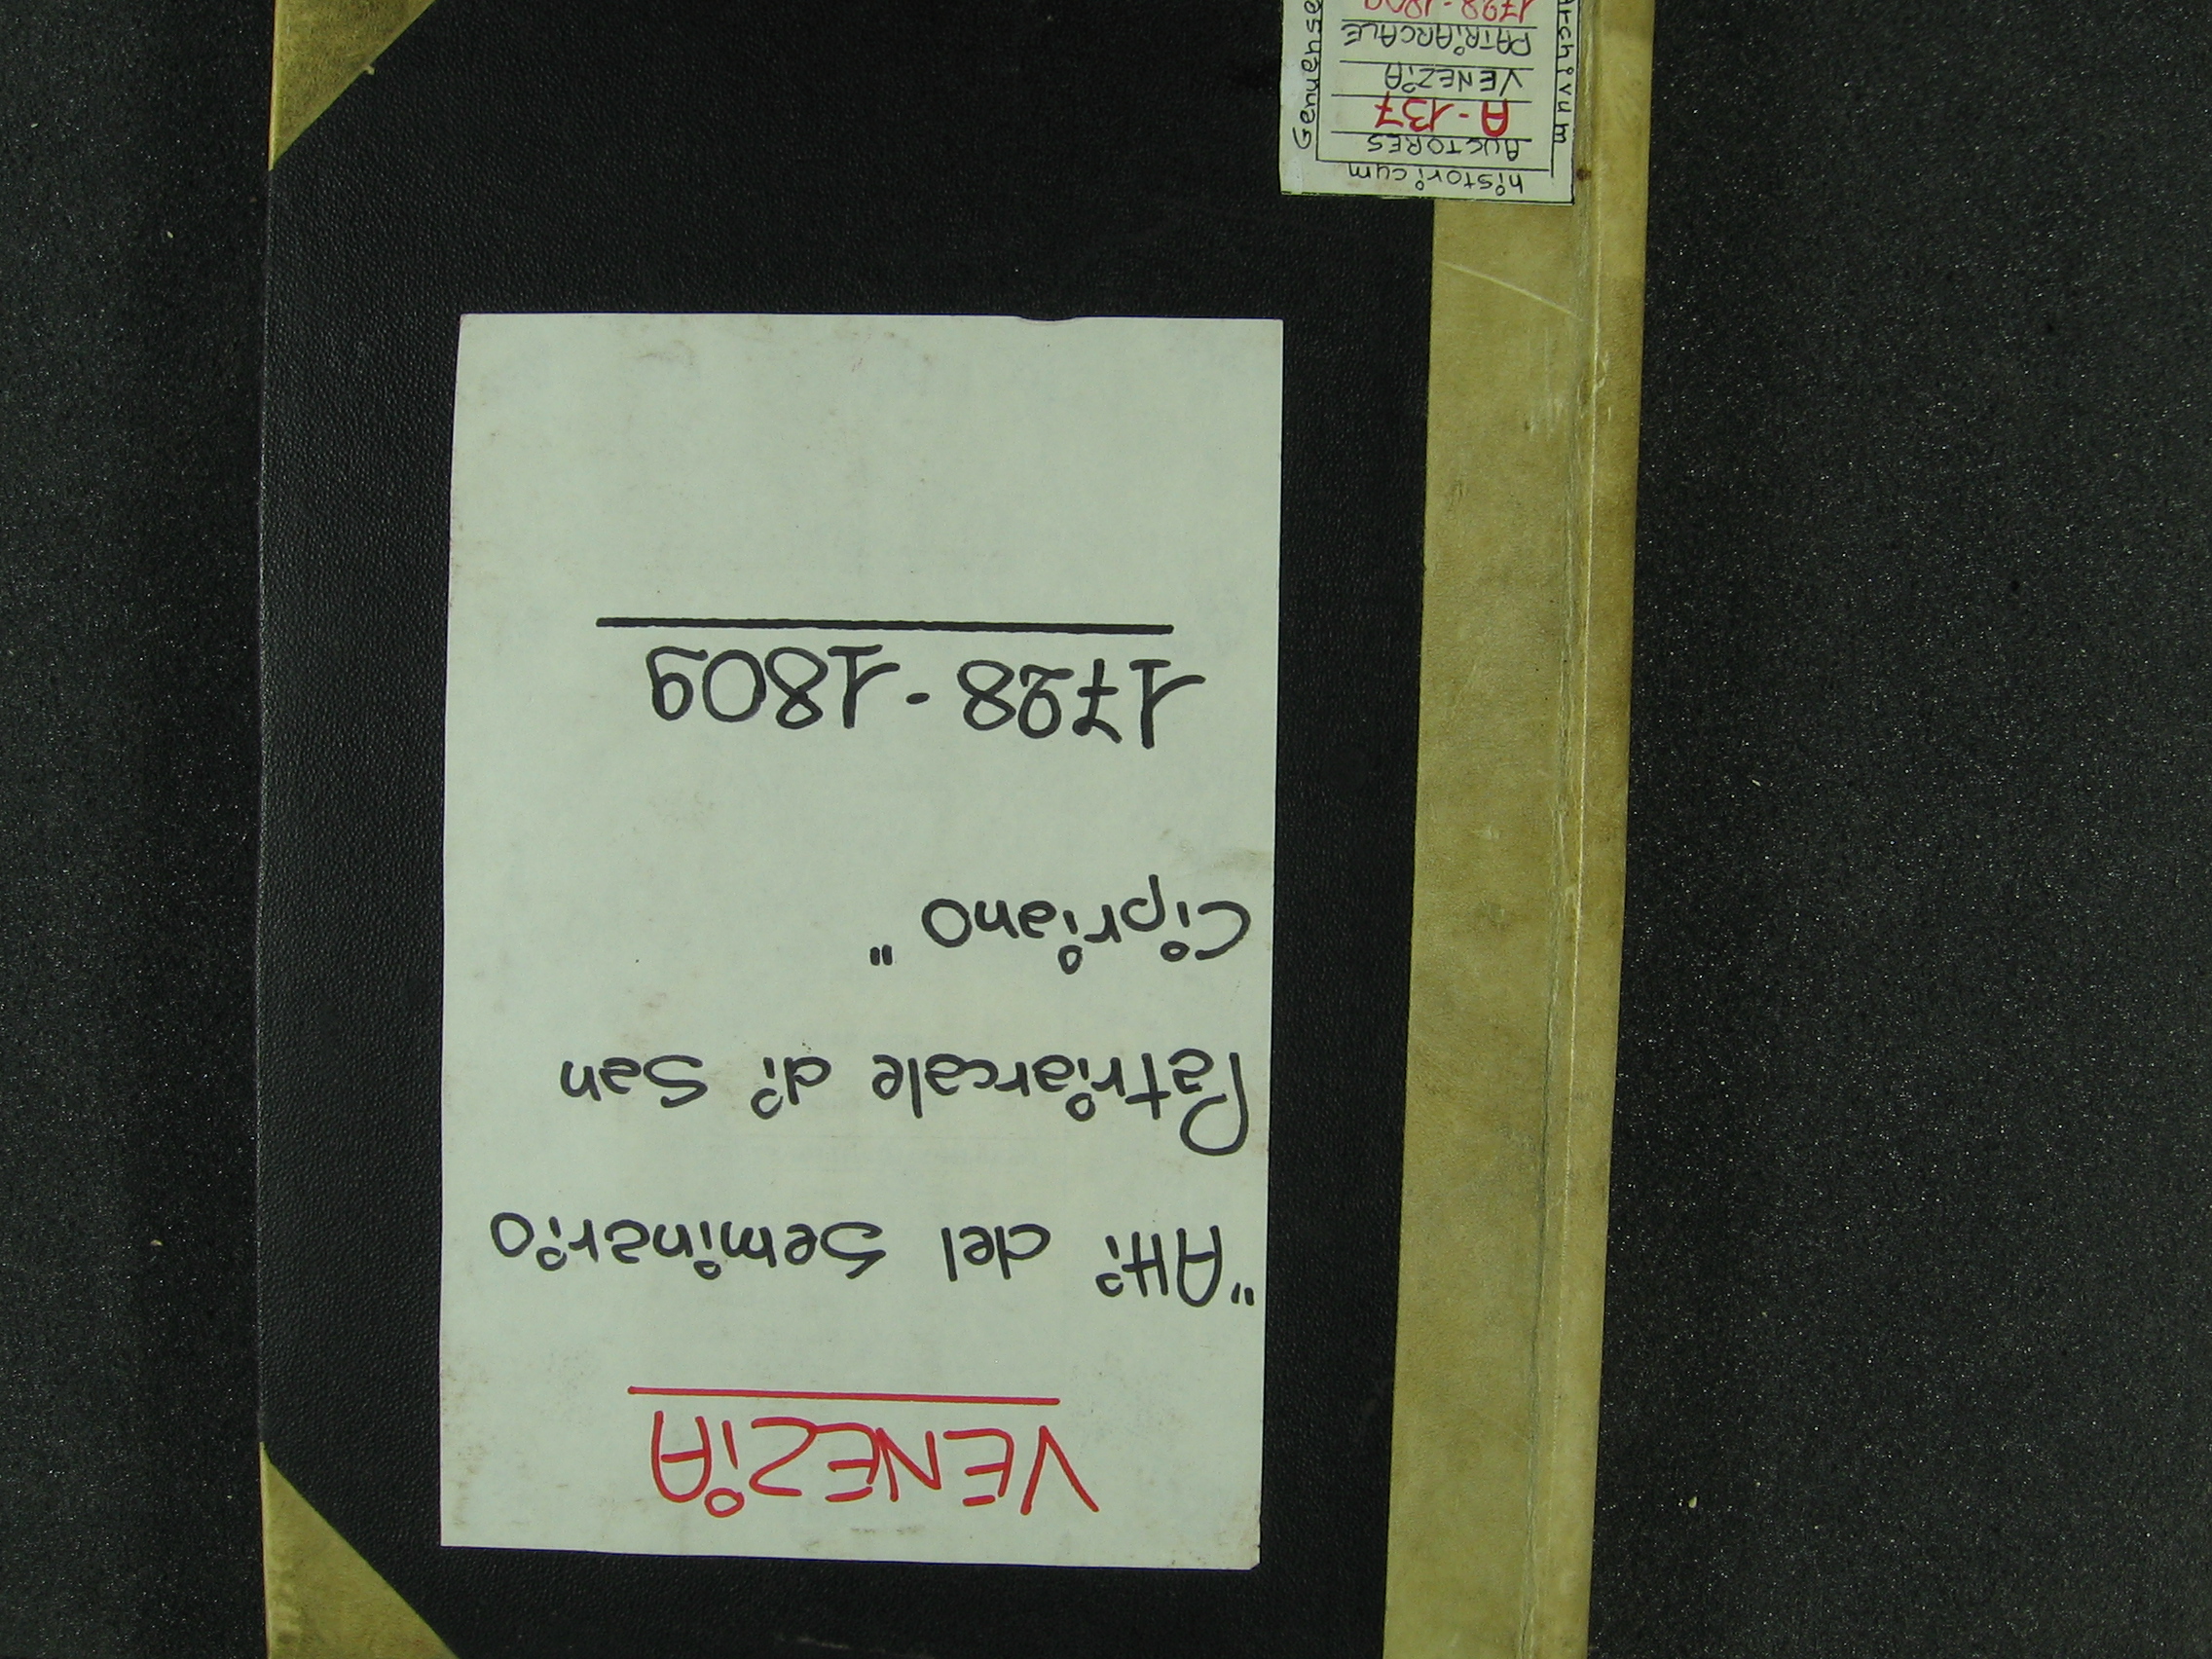 VENEZIA
"Atti del Seminario
Patriarcale di San
Cipriano"
1728-1809
historicum
AUCTORES
A-137
VENEZIA
PATRIARCALE
1728-1809
Archivum
Genuense